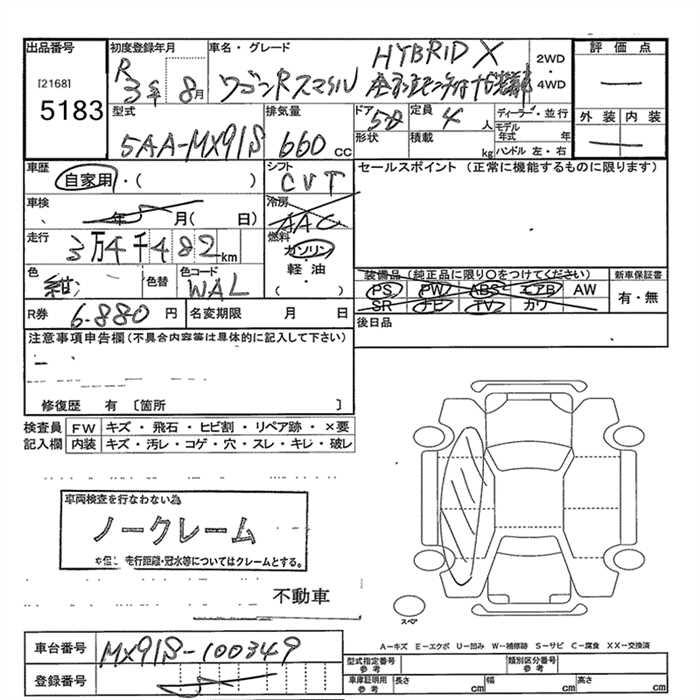 出品番号
[2168]
5183
初度登録年月
R
3年 8月
車名・グレード
ワゴンRスマイル
HYBRID X
2WD
4WD
評価点
外装 内装
型式
5AA-MX91S
排気量
660 cc
ドア
5D
形状
定員
4 人
積載
kg
ディーラー・並行
モデル年式 年
ハンドル 左・右
車歴
自家用・( )
シフト
CVT
セールスポイント (正常に機能するものに限ります)
車検
年 月( 日)
冷房
AAC
走行
3万4千482 km
燃料
ガソリン・
軽・油
( )
色
紺
色替
色コード
WAL
装備品 (純正品に限り〇をつけてください)
PS PW ABS エアB AW
SR ナビ TV カワ
新車保証書
有・無
R券 6.880 円
名変期限 月 日
後日品
注意事項申告欄(不具合内容等は具体的に記入して下さい)
修復歴 有 〔箇所 〕
検査員
記入欄
FW キズ・飛石・ヒビ割・リペア跡・×要
内装 キズ・汚レ・コゲ・穴・スレ・キレ・破レ
車両検査を行なわない為
ノークレーム
走行距離・冠水等についてはクレームとする。
不動車
スペア
A-キズ E-エクボ U-凹み W-補修跡 S-サビ C-腐食 XX-交換済
車台番号 MX91S-100349
登録番号
型式指定番号
参考
類別区分番号
参考
車庫証明用
参考
長さ cm
幅 cm
高さ cm